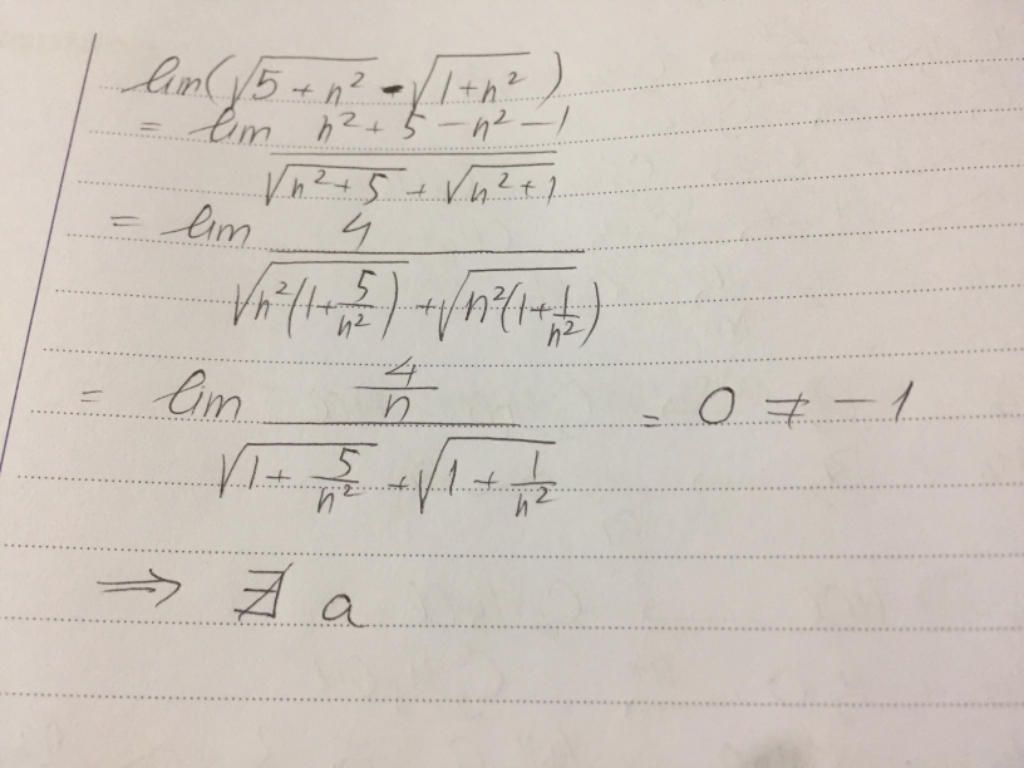 lim(√(5+n²) - √(1+n²))
= lim (n²+5-n²-1)/(√(n²+5) + √(n²+1))
= lim 4/(√(n²(1+5/n²)) + √(n²(1+1/n²)))
= lim (4/n)/(√(1+5/n²) + √(1+1/n²)) = 0 ≠ -1
⇒ ∄ a